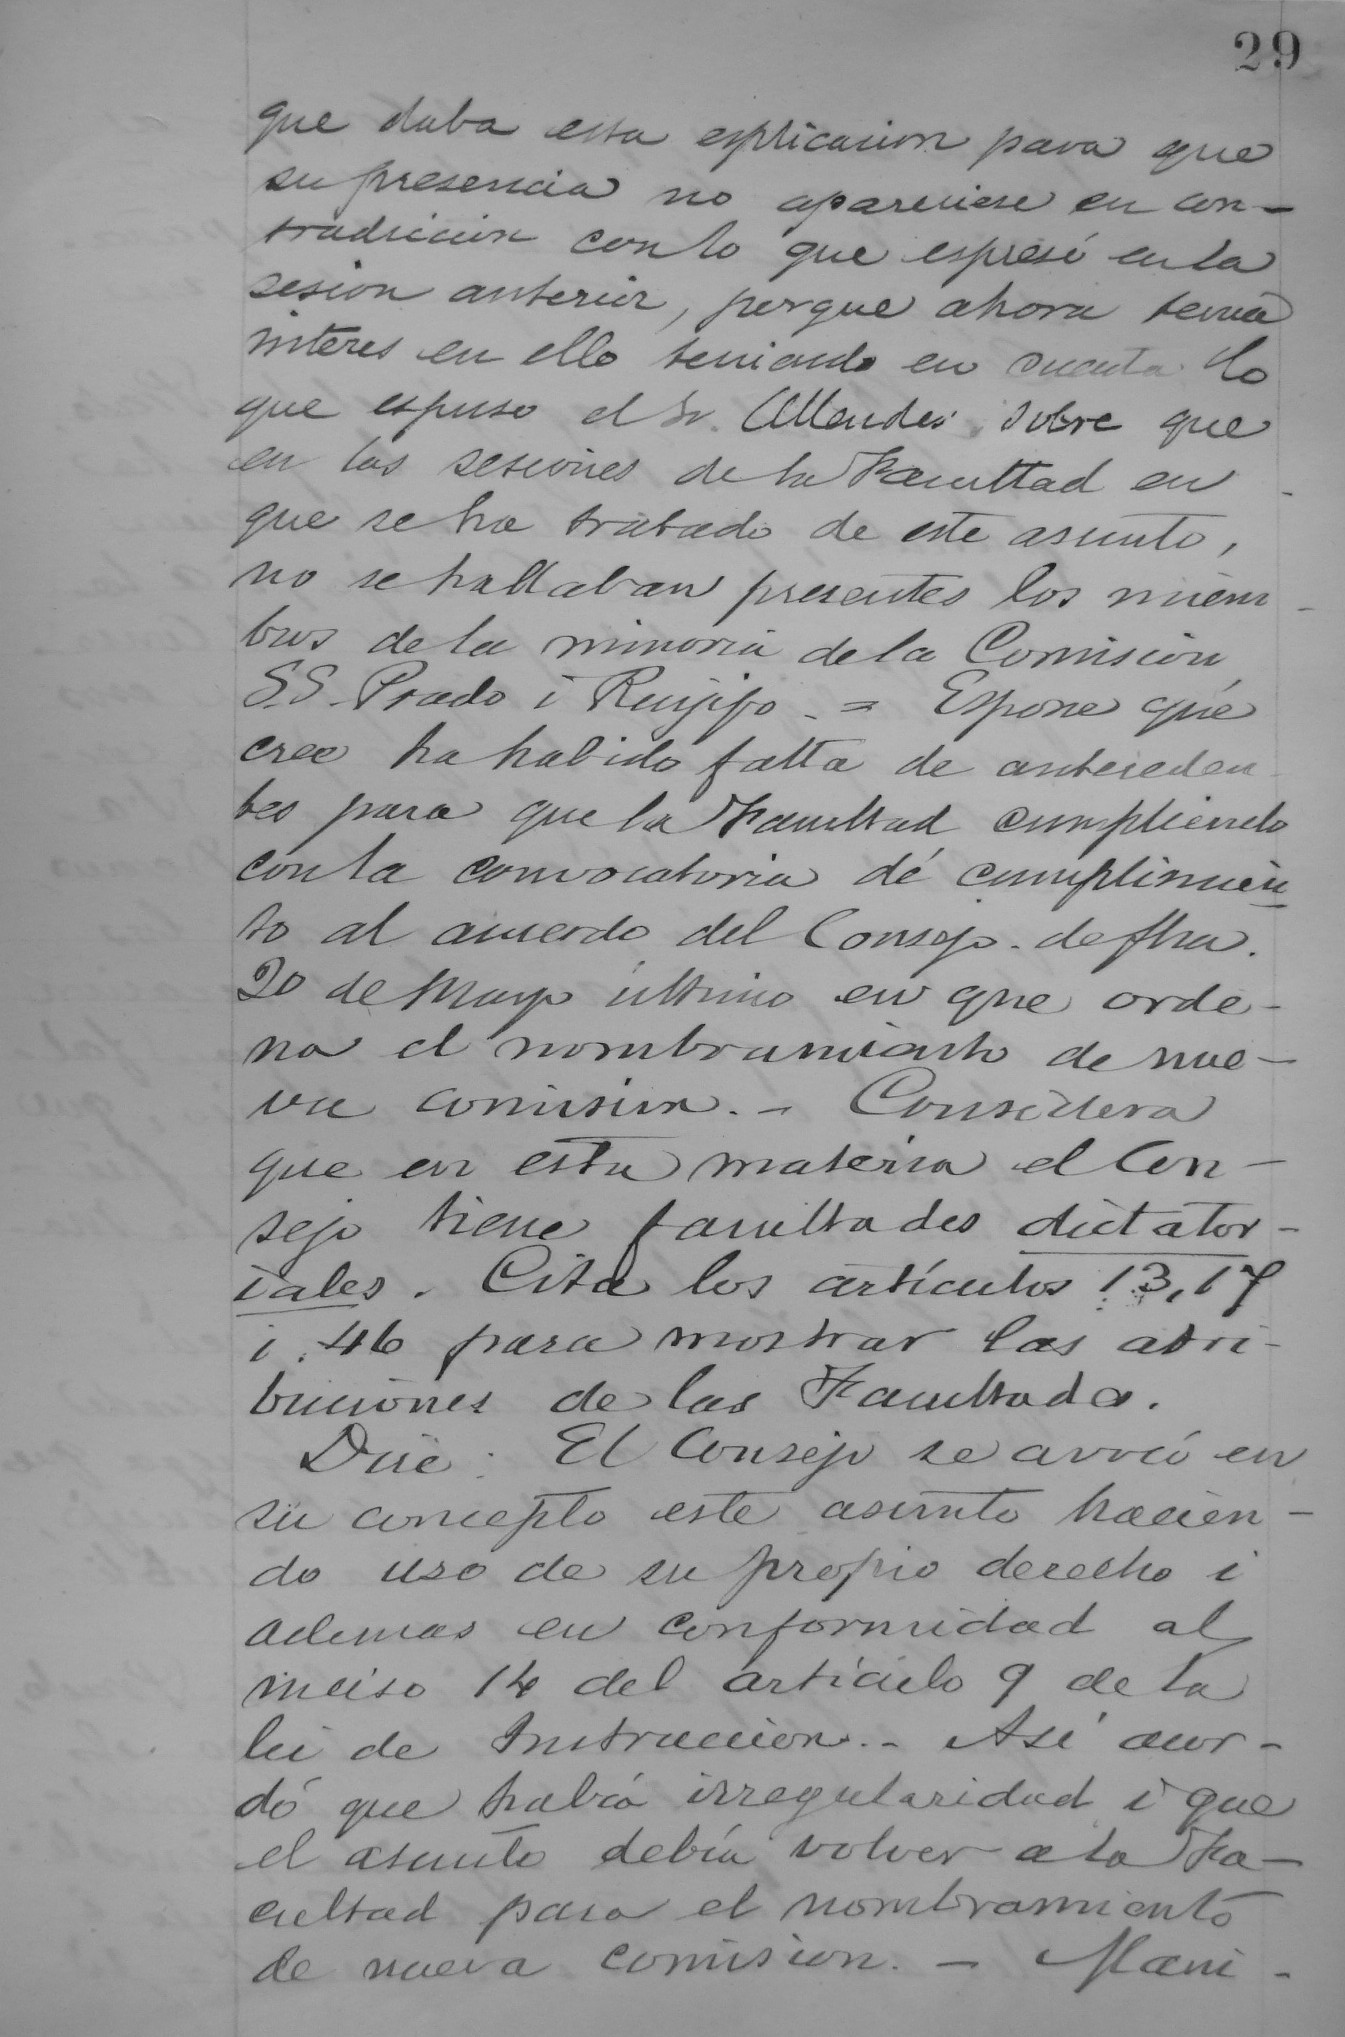 29
que daba esta esplicacion para que
su presencia no apareciese en con-
tradiccion con lo que espresó en la
sesion anterior, porque ahora tenia
interes en ello teniendo en cuenta lo
que espuso el Sr. Allendes sobre que
en las sesiones de la Facultad en
que se ha tratado de este asunto,
no se hallaban presentes los miem-
bros de la minoria de la Comision
S.S. Prado i Renjifo. = Espone que
cree ha habido falta de anteceden-
tes para que la Facultad cumpliendo
con la convocatoria dé cumplimien
to al acuerdo del Consejo. de fha.
20 de Mayo último en que orde-
na el nombramiento de nue-
va comision. - Considera
que en esta materia el Con-
sejo tiene facultades dictator-
iales. Cita los artículos 13, 17
i 46 para mostrar las atri-
buciones de las Facultades.
Dice: El Consejo se avocó en
su concepto este asunto hacien-
do uso de su propio derecho i
ademas en conformidad al
inciso 14 del artículo 9 de la
lei de Instruccion. - Asi acor-
dó que habia irregularidad i que
el asunto debía volver a la Fa-
cultad para el nombramiento
de nueva comision. - Mani-